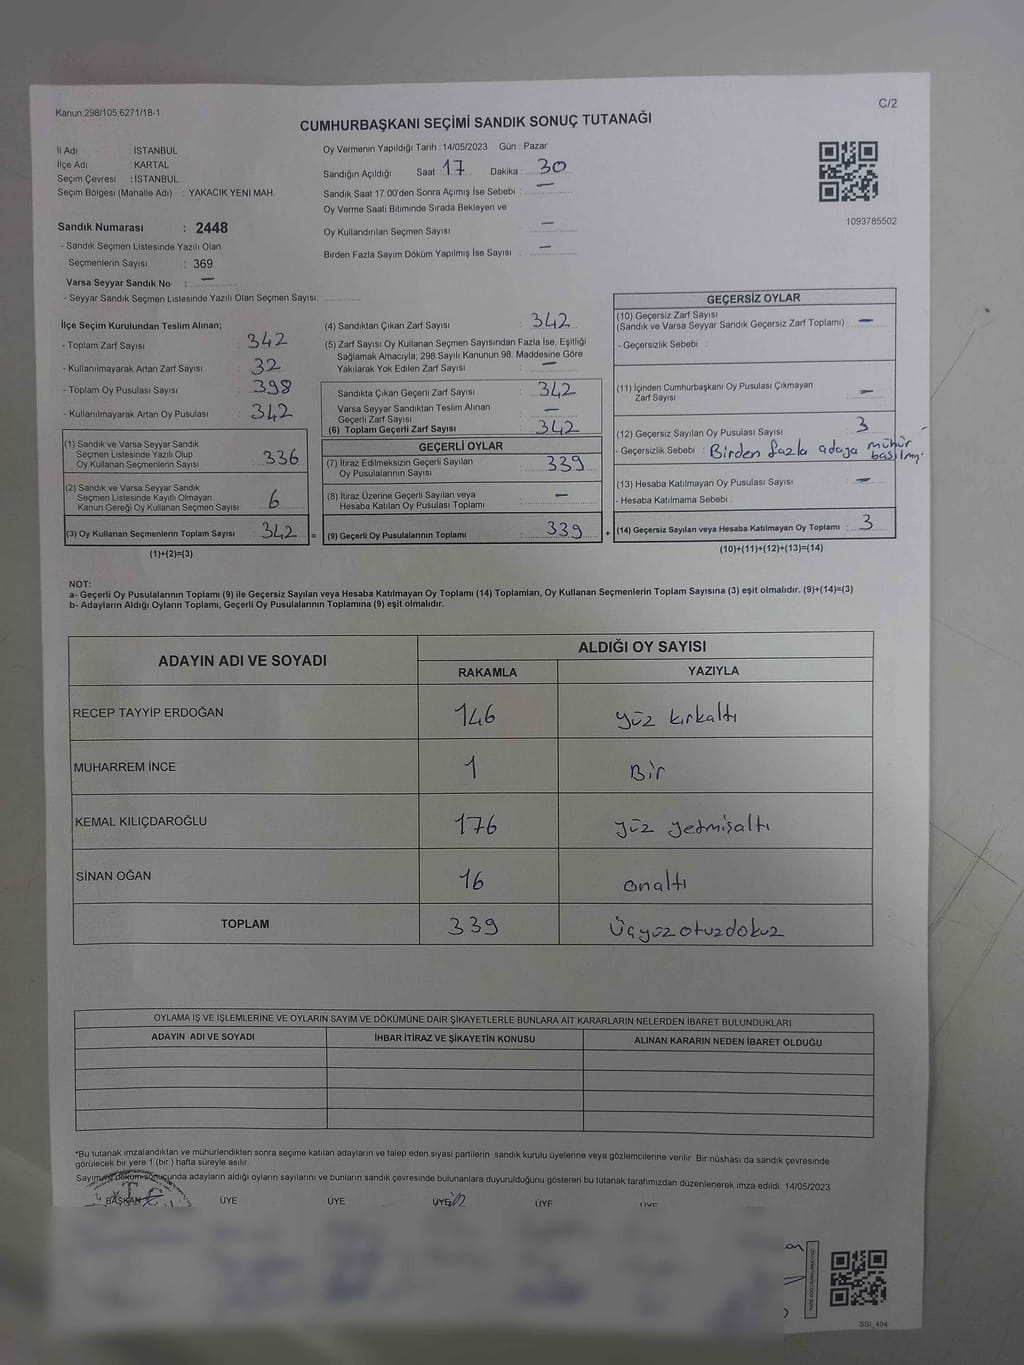 Kanun:298/105,6271/18-1
C/2
CUMHURBAŞKANI SEÇİMİ SANDIK SONUÇ TUTANAĞI
İl Adı : İSTANBUL
İlçe Adı : KARTAL
Seçim Çevresi : İSTANBUL
Seçim Bölgesi (Mahalle Adı) : YAKACIK YENİ MAH.
Oy Vermenin Yapıldığı Tarih : 14/05/2023 Gün : Pazar
Sandığın Açıldığı Saat 17 Dakika : 30
Sandık Saat 17:00'den Sonra Açımış İse Sebebi : —
Oy Verme Saati Bitiminde Sırada Bekleyen ve
Oy Kullandırılan Seçmen Sayısı —
Birden Fazla Sayım Döküm Yapılmış İse Sayısı : —
1093785502
Sandık Numarası : 2448
- Sandık Seçmen Listesinde Yazılı Olan
Seçmenlerin Sayısı : 369
Varsa Seyyar Sandık No : —
- Seyyar Sandık Seçmen Listesinde Yazılı Olan Seçmen Sayısı:
İlçe Seçim Kurulundan Teslim Alınan;
- Toplam Zarf Sayısı 342
- Kullanılmayarak Artan Zarf Sayısı 32
- Toplam Oy Pusulası Sayısı 398
- Kullanılmayarak Artan Oy Pusulası 342
(1) Sandık ve Varsa Seyyar Sandık
Seçmen Listesinde Yazılı Olup
Oy Kullanan Seçmenlerin Sayısı 336
(2) Sandık ve Varsa Seyyar Sandık
Seçmen Listesinde Kayıtlı Olmayan
Kanun Gereği Oy Kullanan Seçmen Sayısı 6
(3) Oy Kullanan Seçmenlerin Toplam Sayısı 342 =
(1)+(2)=(3)
(4) Sandıktan Çıkan Zarf Sayısı : 342
(5) Zarf Sayısı Oy Kullanan Seçmen Sayısından Fazla İse, Eşitliği
Sağlamak Amacıyla; 298 Sayılı Kanunun 98. Maddesine Göre
Yakılarak Yok Edilen Zarf Sayısı : —
Sandıkta Çıkan Geçerli Zarf Sayısı : 342
Varsa Seyyar Sandıktan Teslim Alınan
Geçerli Zarf Sayısı —
(6) Toplam Geçerli Zarf Sayısı : 342
GEÇERLİ OYLAR
(7) İtiraz Edilmeksizin Geçerli Sayılan
Oy Pusulalarının Sayısı : 339
(8) İtiraz Üzerine Geçerli Sayılan veya
Hesaba Katılan Oy Pusulası Toplamı : —
(9) Geçerli Oy Pusulalarının Toplamı : 339 +
GEÇERSİZ OYLAR
(10) Geçersiz Zarf Sayısı
(Sandık ve Varsa Seyyar Sandık Geçersiz Zarf Toplamı) : —
- Geçersizlik Sebebi :
(11) İçinden Cumhurbaşkanı Oy Pusulası Çıkmayan
Zarf Sayısı : —
(12) Geçersiz Sayılan Oy Pusulası Sayısı : 3
- Geçersizlik Sebebi : Birden fazla adaya mühür
basılmış
(13) Hesaba Katılmayan Oy Pusulası Sayısı : —
- Hesaba Katılmama Sebebi :
(14) Geçersiz Sayılan veya Hesaba Katılmayan Oy Toplamı : 3
(10)+(11)+(12)+(13)=(14)
NOT:
a- Geçerli Oy Pusulalarının Toplamı (9) ile Geçersiz Sayılan veya Hesaba Katılmayan Oy Toplamı (14) Toplamları, Oy Kullanan Seçmenlerin Toplam Sayısına (3) eşit olmalıdır. (9)+(14)=(3)
b- Adayların Aldığı Oyların Toplamı, Geçerli Oy Pusulalarının Toplamına (9) eşit olmalıdır.
ADAYIN ADI VE SOYADI ALDIĞI OY SAYISI
RAKAMLA YAZIYLA
RECEP TAYYİP ERDOĞAN 146 yüz kırkaltı
MUHARREM İNCE 1 Bir
KEMAL KILIÇDAROĞLU 176 yüz yetmişaltı
SİNAN OĞAN 16 onaltı
TOPLAM 339 Üçyüzotuzdokuz
OYLAMA İŞ VE İŞLEMLERİNE VE OYLARIN SAYIM VE DÖKÜMÜNE DAİR ŞİKAYETLERLE BUNLARA AİT KARARLARIN NELERDEN İBARET BULUNDUKLARI
ADAYIN ADI VE SOYADI İHBAR İTİRAZ VE ŞİKAYETİN KONUSU ALINAN KARARIN NEDEN İBARET OLDUĞU
*Bu tutanak imzalandıktan ve mühürlendikten sonra seçime katılan adayların ve talep eden siyasi partilerin sandık kurulu üyelerine veya gözlemcilerine verilir. Bir nüshası da sandık çevresinde
görülecek bir yere 1 (bir ) hafta süreyle asılır.
Sayım ve döküm sonucunda adayların aldığı oyların sayılarını ve bunların sandık çevresinde bulunanlara duyurulduğunu gösteren bu tutanak tarafımızdan düzenlenerek imza edildi. 14/05/2023
BAŞKAN ÜYE ÜYE ÜYE ÜYE ÜYE
SSI_404